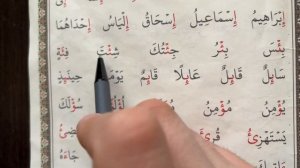 إِبْرَاهِيمُ إِسْمَاعِيلُ إِسْحَاقُ إِلْيَاسُ إِحْدَاهُمَا
بِئْسَ بِئْرُ جِئْتُكَ شِئْتَ فِئَةٍ
سَاءِلٌ قَاءِلٌ عَاءِلًا قَاءِمٌ حِينَئِذٍ
يُؤْمِنُ مُؤْمِنُ سُؤْلَكَ
يَسْتَهْزِئُ قُرِئَ
جَاءَهُ